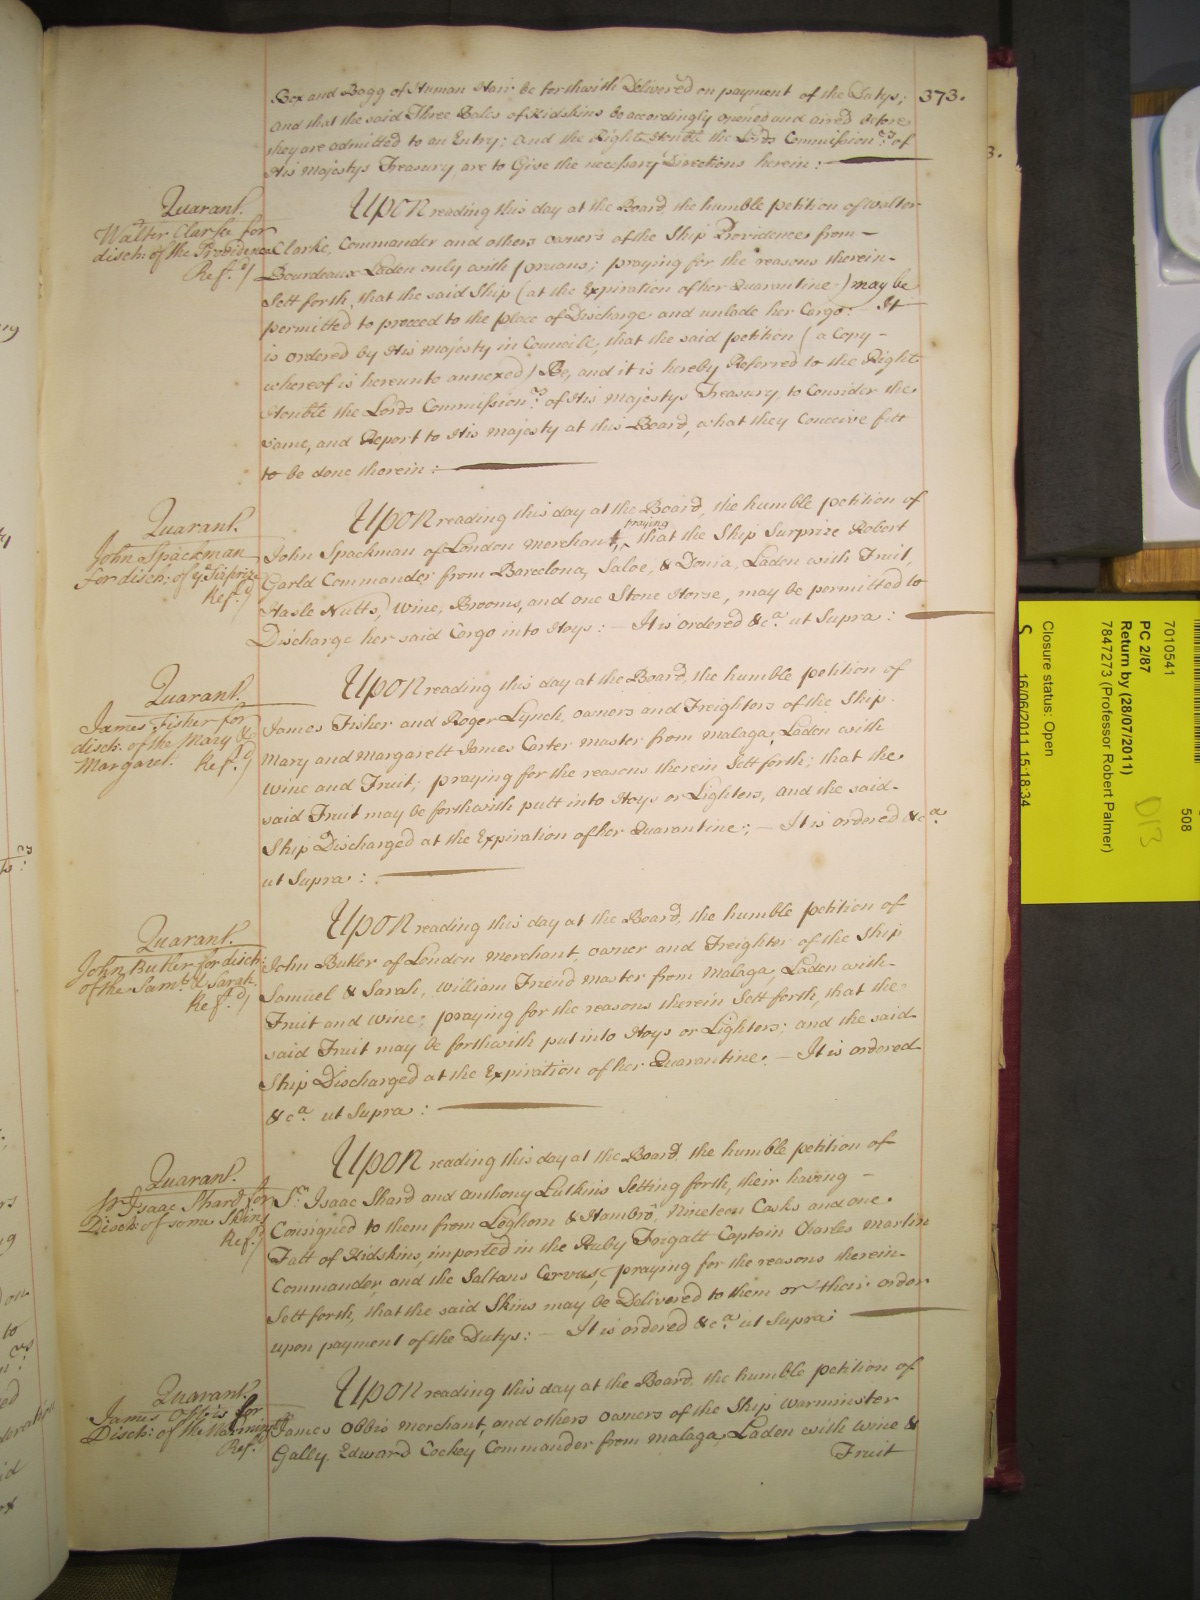 373.
Box and Bagg of Human Hair be forthwith Delivered on payment of the Dutys;
And that the said Three Bales of Kidskins be accordingly opened and aired before
they are admitted to an Entry; And the Right Honble the Lords Commission.rs of
His Majestys Treasury are to Give the necessary Directions herein:
Quarant.
Walter Clarke for
disch: of the Providence
Ref.d
Upon reading this day at the Board, the humble petition of Walter
Clarke, Commander and others owners of the Ship Providence from
Bourdeaux Laden only with pruans; praying for the reasons therein
Sett forth, that the said Ship (at the Expiration of her Quarantine) may be
permitted to proceed to the place of Discharge and unlade her Cargo: It
is ordered by His Majesty in Councill, that the said petition (a Copy
whereof is hereunto annexed) Be, and it is hereby Referred to the Right
Honble the Lords Commission.rs of His Majestys Treasury, to Consider the
same, and Report to His Majesty at this Board, what they Conceive fitt
to be done therein:
Quarant.
John Spackman
for disch: of ye Surprize
Ref.d
Upon reading this day at the Board, the humble petition of
John Spackman of London Merchant, praying that the Ship Surprize Robert
Garld Commander from Barcelona, Saloe, & Donia, Laden with Fruit,
Hasle Nutts, Wine, Brooms, and one Stone Horse, may be permitted to
Discharge her said Cargo into Hoys: It is ordered &ca. ut Supra:
Quarant.
James Fisher for
disch: of the Mary &
Margaret. Ref.d
Upon reading this day at the Board, the humble petition of
James Fisher and Roger Lynch, owners and Freighters of the Ship
Mary and Margarett James Carter Master from Malaga, Laden with
Wine and Fruit; praying for the reasons therein Sett forth; that the
said Fruit may be forthwith putt into Hoys or Lighters, and the said
Ship Discharged at the Expiration of her Quarantine; It is ordered &ca.
ut Supra:
Quarant.
John Butler for disch:
of the Sam.l & Sarah.
Ref.d
Upon reading this day at the Board, the humble petition of
John Butler of London Merchant, owner and Freighter of the Ship
Samuel & Sarah, William Friend Master from Malaga, Laden with
Fruit and Wine; praying for the reasons therein Sett forth, that the
said Fruit may be forthwith put into Hoys or Lighters; and the said
Ship Discharged at the Expiration of her Quarantine. It is ordered
&ca. ut Supra:
Quarant.
Sr. Isaac Shard for
Disch: of some Skins
Ref.d
Upon reading this day at the Board, the humble petition of
Sr. Isaac Shard and Anthony Lutkins Setting forth, their having
Consigned to them from Leghorn & Hambro, Nineteen Casks and one
Fatt of Kidskins, imported in the Ruby Frigatt Captain Charles Martin
Commander, and the Saltans Cervus, praying for the reasons therein
Sett forth, that the said Skins may be Delivered to them or their order
upon payment of the Dutys: It is ordered &ca. ut Supra:
Quarant.
James Obbis for
Disch: of the Warminst:
Ref.d
Upon reading this day at the Board, the humble petition of
James Obbis Merchant, and others owners of the Ship Warminster
Gally, Edward Cockey Commander from Malaga, Laden with Wine &
Fruit
7010541
PC 2/87
Return by (28/07/2011)
7847273 (Professor Robert Palmer)
Closure status: Open
16/06/2011 15:18:34
S
508
D13